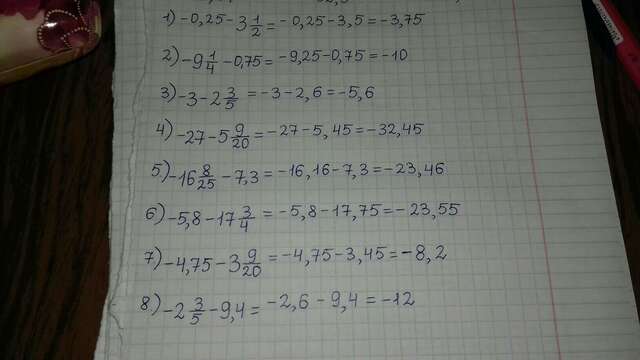 1) -0,25-3 1/2 = -0,25-3,5=-3,75
2) -9 1/4 -0,75= -9,25-0,75=-10
3) -3-2 3/5 =-3-2,6=-5,6
4) -27-5 9/20 =-27-5,45=-32,45
5) -16 8/25 -7,3= -16,16-7,3=-23,46
6) -5,8-17 3/4 = -5,8-17,75=-23,55
7) -4,75-3 9/20 =-4,75-3,45=-8,2
8) -2 3/5 -9,4= -2,6-9,4=-12